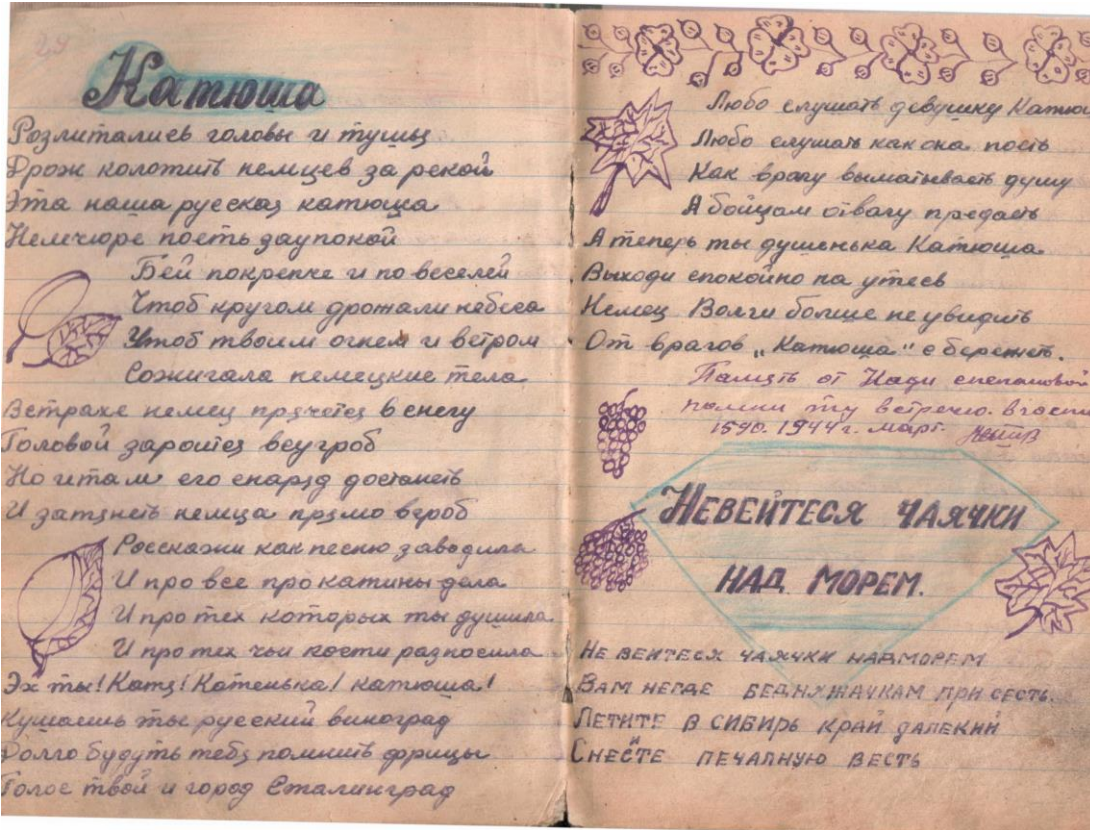 29
Катюша
Розлитались головы и тушы
Дрож колотить немцев за рекой
Эта наша русская катюша
Немчюре поёть заупокой
Бей покрепче и по веселей
Чтоб кругом дрожали небеса
Чтоб твоим огнем и ветром
Сожигала немецкие тела
Встрахе немец прячется вснегу
Головой зароится всугроб
Но итам его снаряд достанеть
И затянеть немца прямо вгроб
Росскажи как песню заводила
И про все про катины дела
И про тех которых ты душила
И про тех чьи кости разносила
Эх ты! Катя! Катенька! катюша!
Кушаешь ты русский виноград
Долго будуть тебя помнить фрицы
Голос твой и город Сталинград
Любо слушать девушку Катюш
Любо слушать как она поёть
Как врагу выматываеть душу
А бойцам отвагу предаеть
А теперь ты душенька Катюша
Выходи спокойно на утесь
Немец Волги болше не увидить
От врагов „Катюша" сбережеть.
Память от Нади степановой
помни ту встречю. в
1590. 1944 г. март.
Невейтеся чаячки
над морем.
Не веитеся чаячки надморем
Вам негде бедняжачкам присесть.
Летите в сибирь край далекий
и
Снесте печалную весть